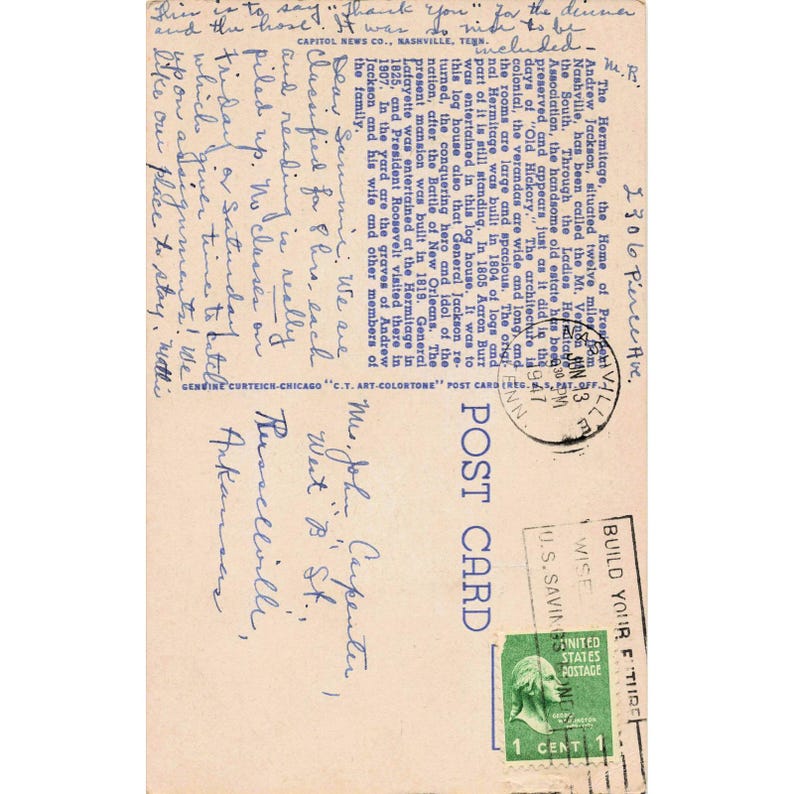 This is to say "Thank You" for the dinner
and the hose. It was so nice to be
included -
M. B.
CAPITOL NEWS CO., NASHVILLE, TENN.
2306 Pierce Ave.
The Hermitage, the Home of President
Andrew Jackson, situated twelve miles from
Nashville, has been called the Mt. Vernon of
the South. Through the Ladies Hermitage
Association, the handsome old estate has been
preserved and appears just as it did in the
days of "Old Hickory." The architecture is
colonial, the verandas are wide and long and
the rooms are large and spacious. The origi-
nal Hermitage was built in 1804 of logs and
part of it is still standing. In 1805 Aaron Burr
was entertained in this log house. It was to
this log house also that General Jackson re-
turned, the conquering hero and idol of the
nation, after the Battle of New Orleans. The
present mansion was built in 1819. General
Lafayette was entertained at the Hermitage
1825, and President Roosevelt visited there in
1907. In the yard are the graves of Andrew
Jackson and his wife and other members of
the family.
Dear Sammie: We are
classified for 8 hrs. each
and reading is really
piled up. No classes on
Friday or Saturday
which gives time to
upon assignments. We
like our place to stay.
GENUINE CURTEICH-CHICAGO "C.T. ART-COLORTONE" POST CARD (REG. U.S. PAT. OFF.)
POST CARD
NASHVILLE
TENN.
JUN 13
930 PM
1947
BUILD YOUR FUTURE
WISE
U.S. SAVINGS BONDS
UNITED
STATES
POSTAGE
GEORGE
WASHINGTON
1 CENT 1
Mrs. John Carpenter,
West "B" St.,
Russellville,
Arkansas